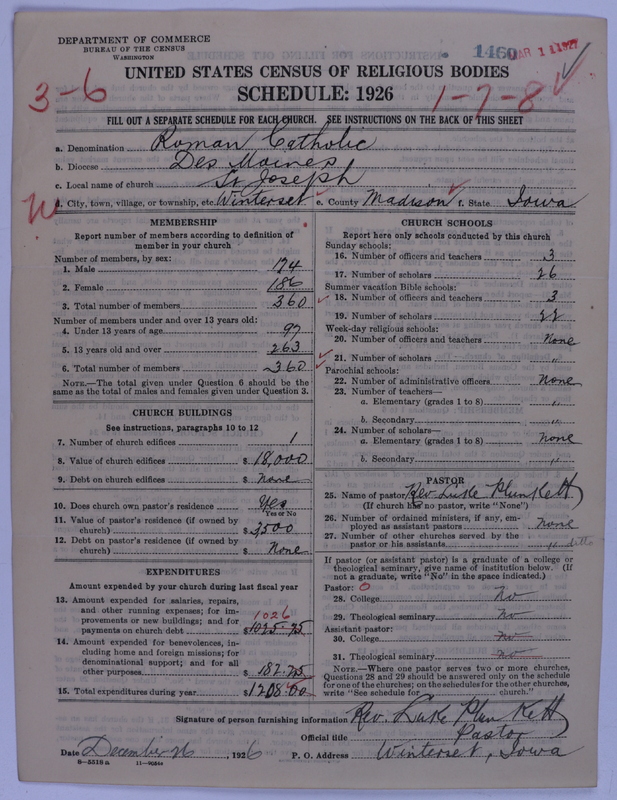 DEPARTMENT OF COMMERCE
BUREAU OF THE CENSUS
WASHINGTON
1460
MAR 11 1927
UNITED STATES CENSUS OF RELIGIOUS BODIES
SCHEDULE: 1926
3-6
1-7-8
FILL OUT A SEPARATE SCHEDULE FOR EACH CHURCH. SEE INSTRUCTIONS ON THE BACK OF THIS SHEET
a. Denomination Roman Catholic
b. Diocese Des Moines
c. Local name of church St Joseph
d. City, town, village, or township, etc. Winterset e. County Madison f. State Iowa
MEMBERSHIP
Report number of members according to definition of
member in your church
Number of members, by sex:
1. Male 174
2. Female 186
3. Total number of members 360
Number of members under and over 13 years old:
4. Under 13 years of age 97
5. 13 years old and over 263
6. Total number of members 360
NOTE.—The total given under Question 6 should be the
same as the total of males and females given under Question 3.
CHURCH BUILDINGS
See instructions, paragraphs 10 to 12
7. Number of church edifices 1
8. Value of church edifices $ 18,000
9. Debt on church edifices $ None
10. Does church own pastor's residence Yes
Yes or No
11. Value of pastor's residence (if owned by
church) $ 3500
12. Debt on pastor's residence (if owned by
church) $ None
EXPENDITURES
Amount expended by your church during last fiscal year
13. Amount expended for salaries, repairs,
and other running expenses; for im-
provements or new buildings; and for 1026
payments on church debt $ 1025.75
14. Amount expended for benevolences, in-
cluding home and foreign missions; for
denominational support; and for all
other purposes $ 182.25
15. Total expenditures during year $ 1208.00
CHURCH SCHOOLS
Report here only schools conducted by this church
Sunday schools:
16. Number of officers and teachers 3
17. Number of scholars 26
Summer vacation Bible schools:
18. Number of officers and teachers 3
19. Number of scholars 22
Week-day religious schools:
20. Number of officers and teachers None
21. Number of scholars "
Parochial schools:
22. Number of administrative officers None
23. Number of teachers—
a. Elementary (grades 1 to 8) "
b. Secondary "
24. Number of scholars—
a. Elementary (grades 1 to 8) None
b. Secondary "
PASTOR
25. Name of pastor Rev. Luke Plunkett
(If church has no pastor, write "None")
26. Number of ordained ministers, if any, em-
ployed as assistant pastors None
27. Number of other churches served by the
pastor or his assistants " ditto
If pastor (or assistant pastor) is a graduate of a college or
theological seminary, give name of institution below. (If
not a graduate, write "No" in the space indicated.)
Pastor: 0
28. College No
29. Theological seminary No
Assistant pastor:
30. College No
31. Theological seminary No
NOTE.—Where one pastor serves two or more churches,
Questions 28 and 29 should be answered only on the schedule
for one of the churches; on the schedules for the other churches,
write "See schedule for church."
Signature of person furnishing information Rev. Luke Plunkett
Official title Pastor
Date December 26, 1926 P. O. Address Winterset, Iowa
8—5518a 11—9084a